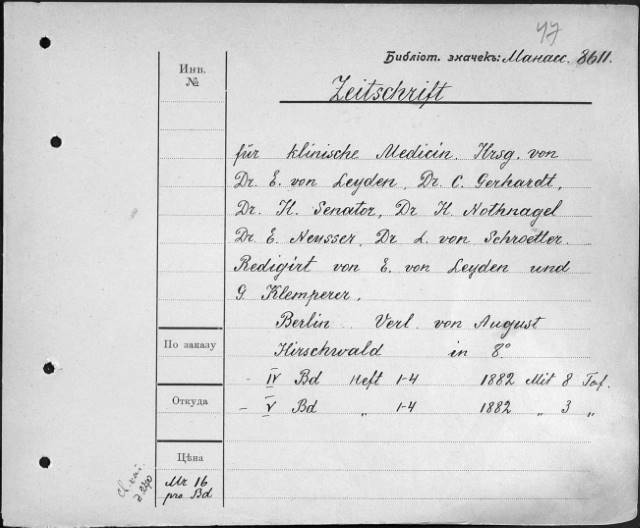 47
Библіот. значекъ: Манасс. 8611.
Инв.
№
Zeitschrift
für klinische Medicin. Hrsg. von
Dr. E. von Leyden, Dr. C. Gerhardt,
Dr. H. Senator, Dr H. Nothnagel
Dr. E. Neusser, Dr. L. von Schroetter.
Redigirt von E. von Leyden und
G Klemperer.
Berlin Verl. von August
Hirschwald in 8°
По заказу
- IV Bd Heft 1-4 1882 Mit 8 Taf.
Откуда
- V Bd „ 1-4 1882 „ 3 „
Цѣна
Mr 16
pro Bd